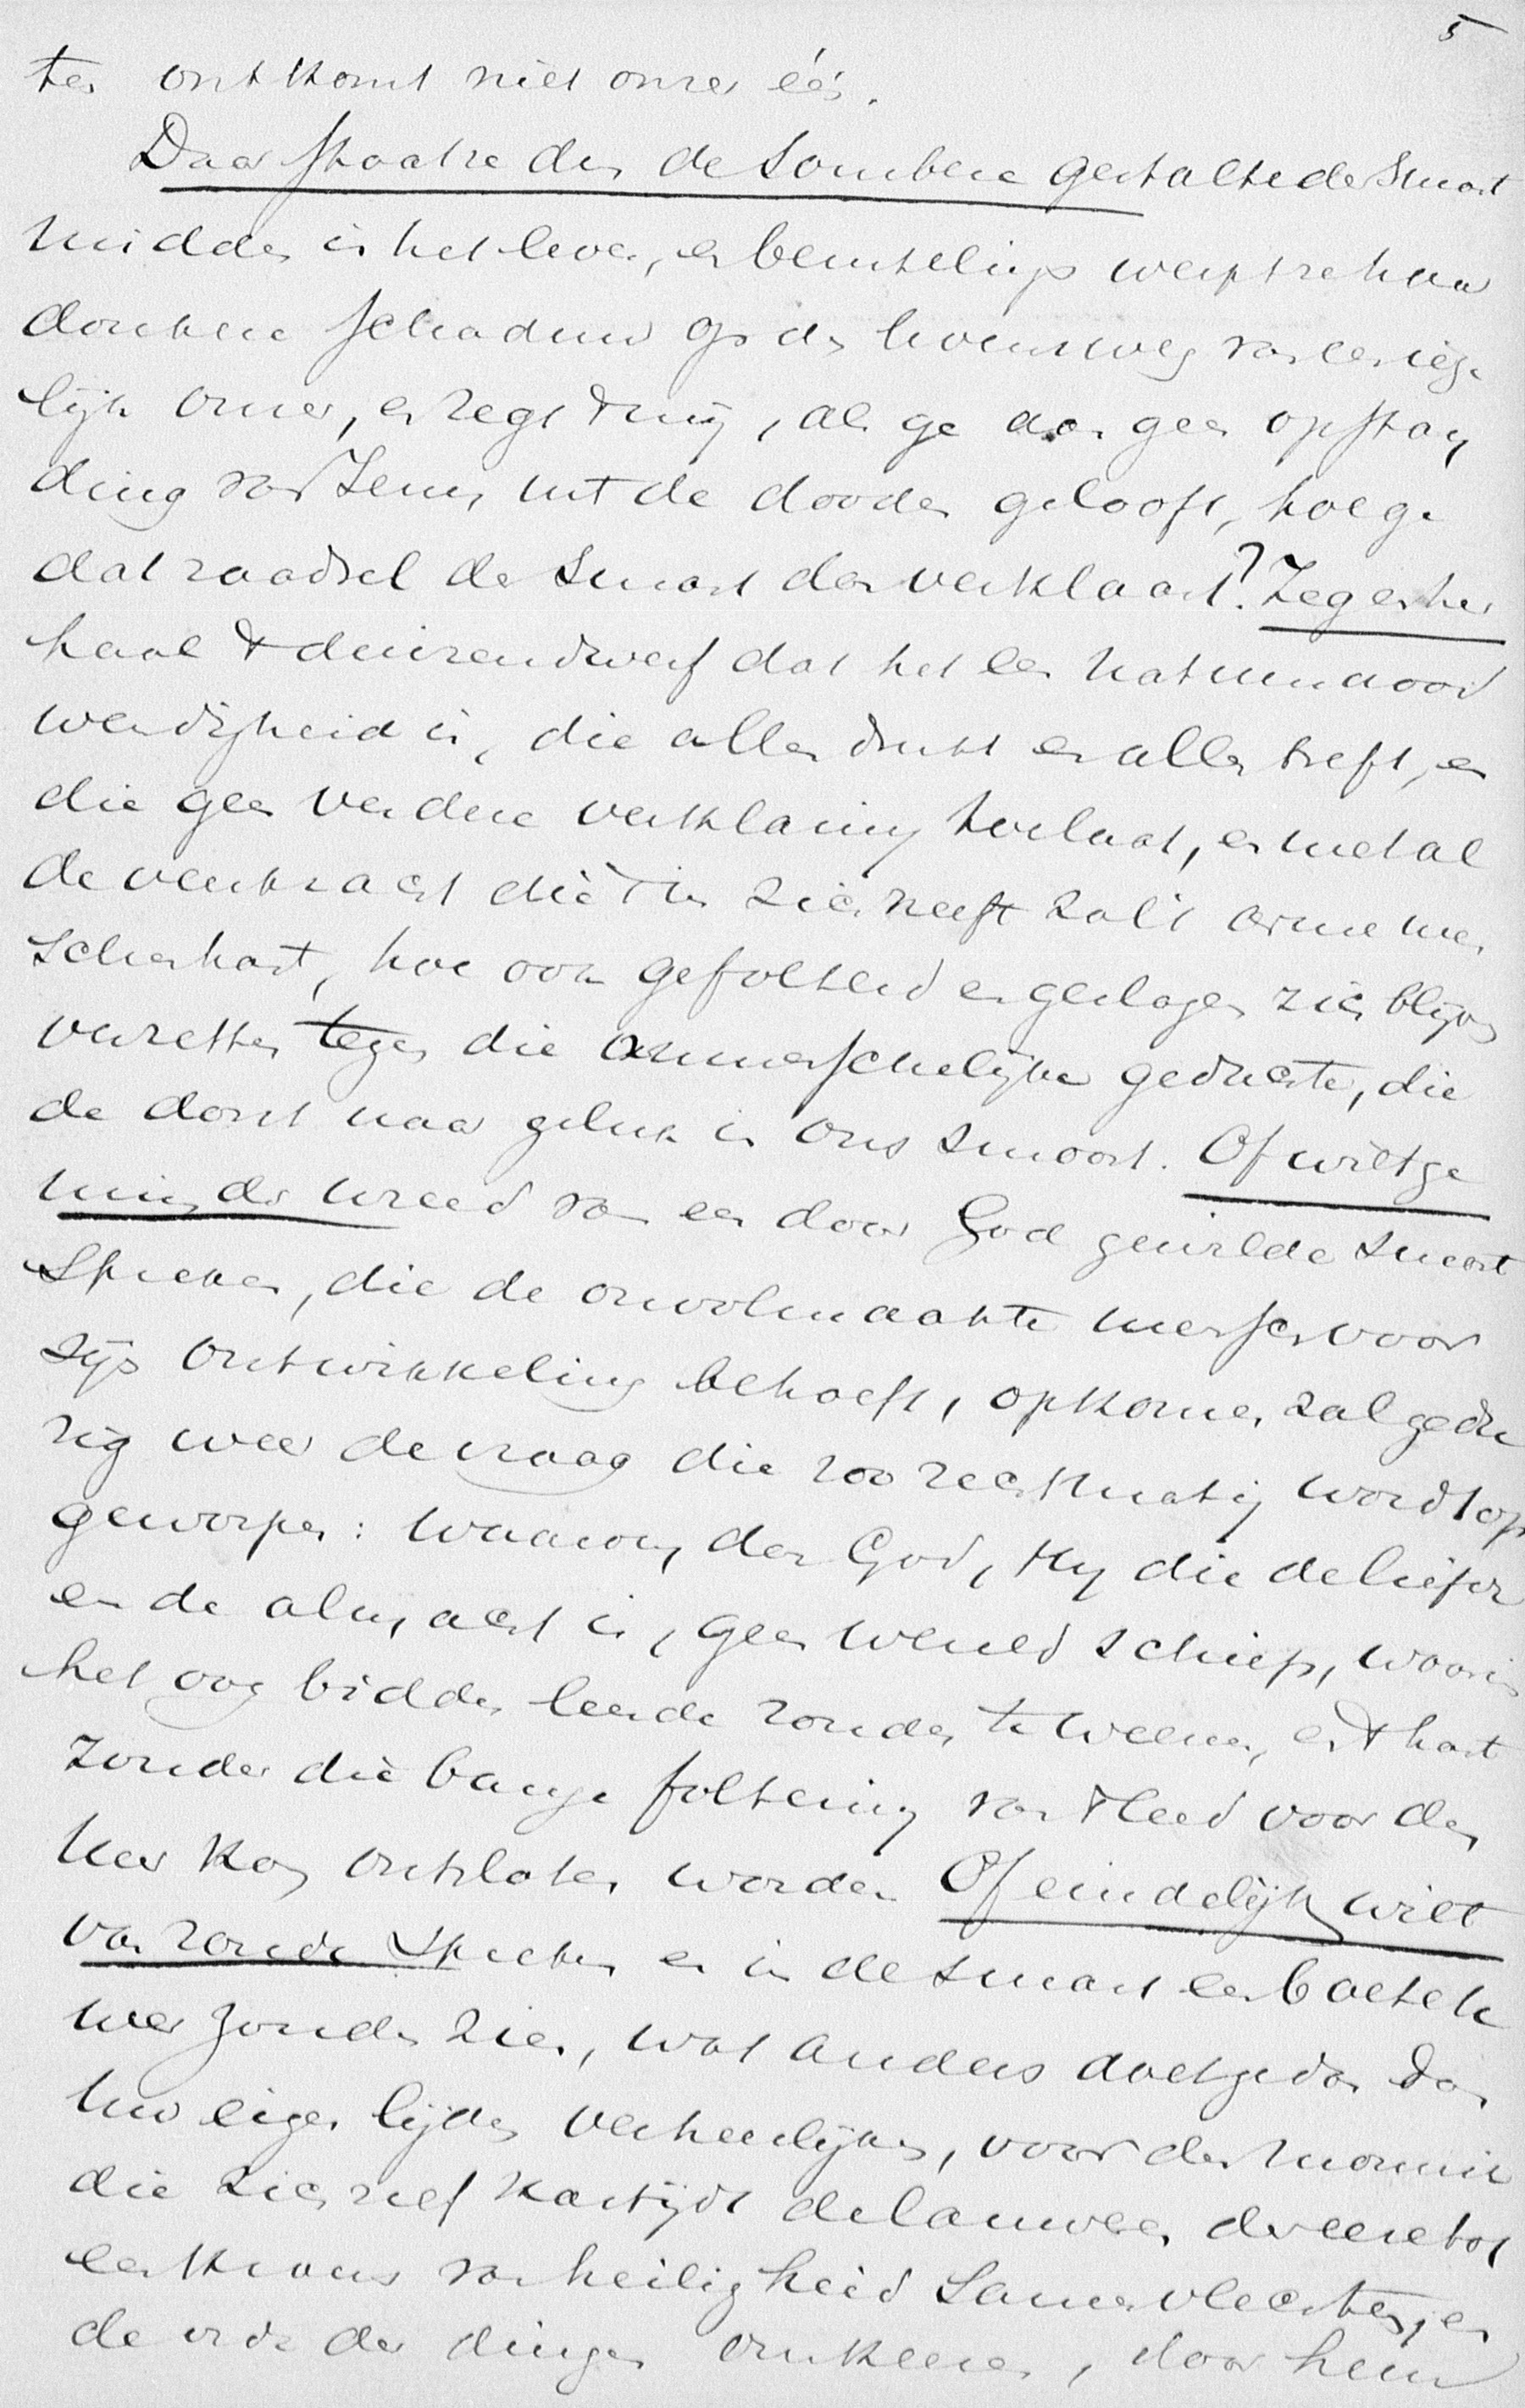 5
ten ontkomt niet onzer één.
Daar staat ze dan de sombere gestalte der Smart
midden in het leven, en beurtelings werpt ze haar
donkere schaduw op den levensweg van een iege-
lijk onzer, en zegt mij, als ge aan geen opstan
ding van Jezus uit de dooden gelooft, hoe ge
dat raadsel der Smart dan verklaart? Zeg en her
haal 't duizendwerf dat het een natuurnood
wendigheid is, die allen drukt en allen treft, en
die geen verdere verklaring toelaat, en met al
de veerkracht die 't in zich heeft zal 't arme men
schenhart, hoe ook gefolterd en geslagen zich blijven
verzetten tegen die onmenschelijke gedachte, die
de dorst naar geluk in ons smoort. Of wilt ge
minder wreed van een door God gewilde smart
spreken, die de onvolmaakte mensch voor
zijn ontwikkeling behoeft, opkomen zal gedu
rig weer de vraag die zoo rechtmatig wordt op
geworpen: waarom dan God, Hij die de liefde
en de almacht is, geen wereld schiep, waarin
het oog bidden leerde zonder te weenen, en 't hart
zonder die bange foltering van 't leed voor den
Heer kon ontsloten worden. Of eindelijk wilt
van zonde spreken en in de smart een boete
uwer zonden zien, wat anders doet ge dan dan
uw eigen lijden verheerlijken, voor den monnik
die zich zelf kastijdt de lauweren der eere tot
een krans van heiligheid samenvlechten, en
de orde der dingen omkeeren, door hem